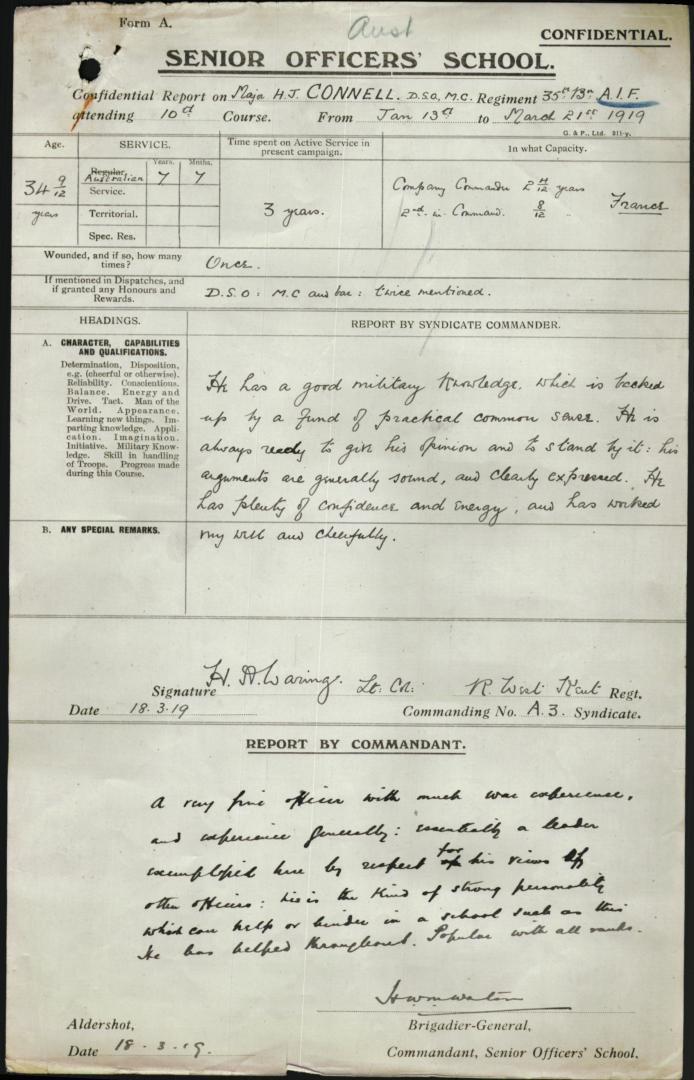 Form A.
Aust
CONFIDENTIAL.
SENIOR OFFICERS' SCHOOL.
Confidential Report on Major H.J. CONNELL. D.S.O, M.C. Regiment 35th Bn A.I.F.
attending 10th Course. From Jan 13th to March 21st 1919
G. & P., Ltd. 311-y.
Age.
SERVICE.
Time spent on Active Service in
present campaign.
In what Capacity.
Years. Mnths.
34 9/12
years
Regular,
Australian
Service. 7 7
Territorial.
Spec. Res.
3 years.
Company Commander 2 4/12 years
2nd in Command. 8/12 "
France
Wounded, and if so, how many
times?
Once.
If mentioned in Dispatches, and
if granted any Honours and
Rewards.
D.S.O : M.C and bar : twice mentioned.
HEADINGS.
REPORT BY SYNDICATE COMMANDER.
A. CHARACTER, CAPABILITIES
AND QUALIFICATIONS.
Determination, Disposition,
e.g. (cheerful or otherwise).
Reliability. Conscientious.
Balance. Energy and
Drive. Tact. Man of the
World. Appearance.
Learning new things. Im-
parting knowledge. Appli-
cation. Imagination.
Initiative. Military Know-
ledge. Skill in handling
of Troops. Progress made
during this Course.
He has a good military knowledge, which is backed
up by a fund of practical common sense. He is
always ready to give his opinion and to stand by it : his
arguments are generally sound, and clearly expressed. He
has plenty of confidence and energy, and has worked
very well and cheerfully.
B. ANY SPECIAL REMARKS.
Signature H. A. Waring. Lt: Col: R. West Kent Regt.
Date 18.3.19
Commanding No. A.3. Syndicate.
REPORT BY COMMANDANT.
A very fine officer with much war experience,
and experience generally : essentially a leader
exemplified here by respect for his views by
other officers : he is the kind of strong personality
which can help or hinder in a school such as this
He has helped throughout. Popular with all ranks.
Aldershot,
Date 18.3.19.
Brigadier-General,
Commandant, Senior Officers' School.